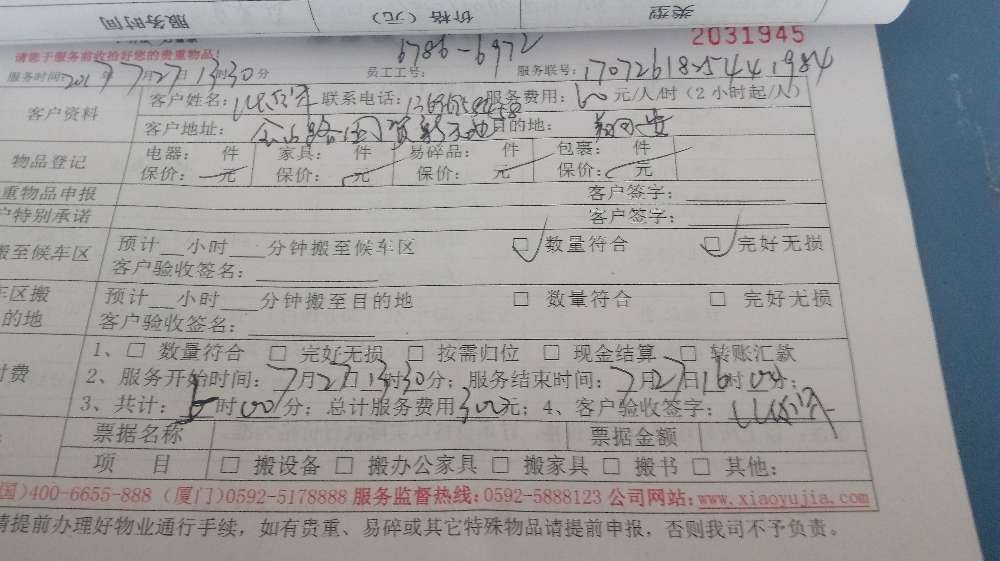 服务时间 价格（元） 类型
请您于服务前收拾好您的贵重物品！ 2031945
服务时间:2017年7月27日13时30分 员工工号: 6786-6972 服务联号: 170726182544 1984
客户资料 客户姓名: 联系电话: 服务费用: 元/人/时（2小时起/人）
客户地址: 目的地:
物品登记 电器: 件 家具: 件 易碎品: 件 包裹: 件
保价: 元 保价: 元 保价: 元 保价: 元
重物品申报 客户签字:
户特别承诺 客户签字:
搬至候车区 预计__小时___分钟搬至候车区 ☑ 数量符合 ☑ 完好无损
客户验收签名:
车区搬 预计__小时___分钟搬至目的地 □ 数量符合 □ 完好无损
的地 客户验收签名:
付费 1、□ 数量符合 □ 完好无损 □ 按需归位 □ 现金结算 □ 转账汇款
2、服务开始时间: 7月27日13时30分; 服务结束时间: 7月27日16时00分;
3、共计: 时00分; 总计服务费用300元; 4、客户验收签字:
票据名称 票据金额
项 目 □ 搬设备 □ 搬办公家具 □ 搬家具 □ 搬书 □ 其他:
国)400-6655-888 (厦门)0592-5178888 服务监督热线:0592-5888123 公司网站:www.xiaoyujia.com
请提前办理好物业通行手续，如有贵重、易碎或其它特殊物品请提前申报，否则我司不予负责。